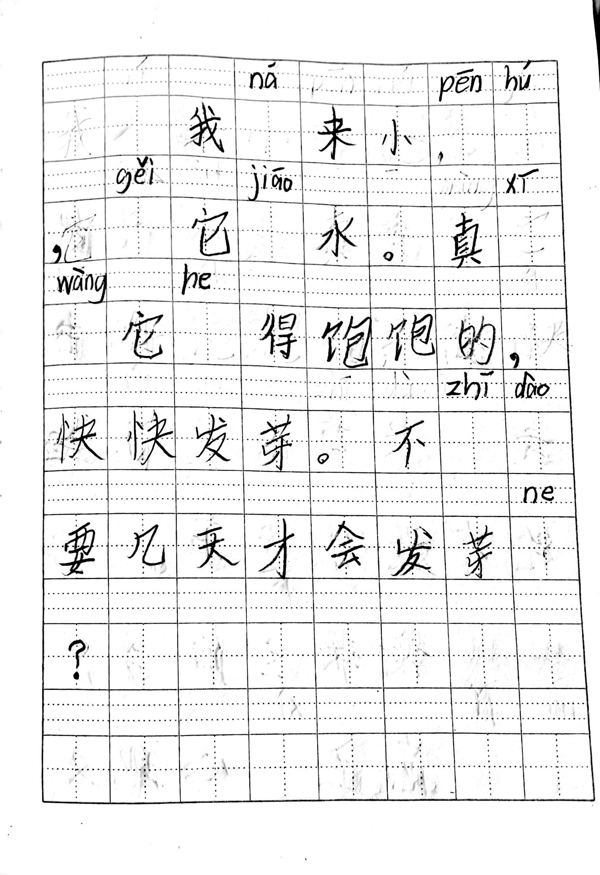 ná pēn hú
我 来 小 ,
gěi jiāo xī
, 它 水 。 真
wàng he
它 得 饱 饱 的 ,
zhī dào
快 快 发 芽 。 不
ne
要 几 天 才 会 发 芽
?